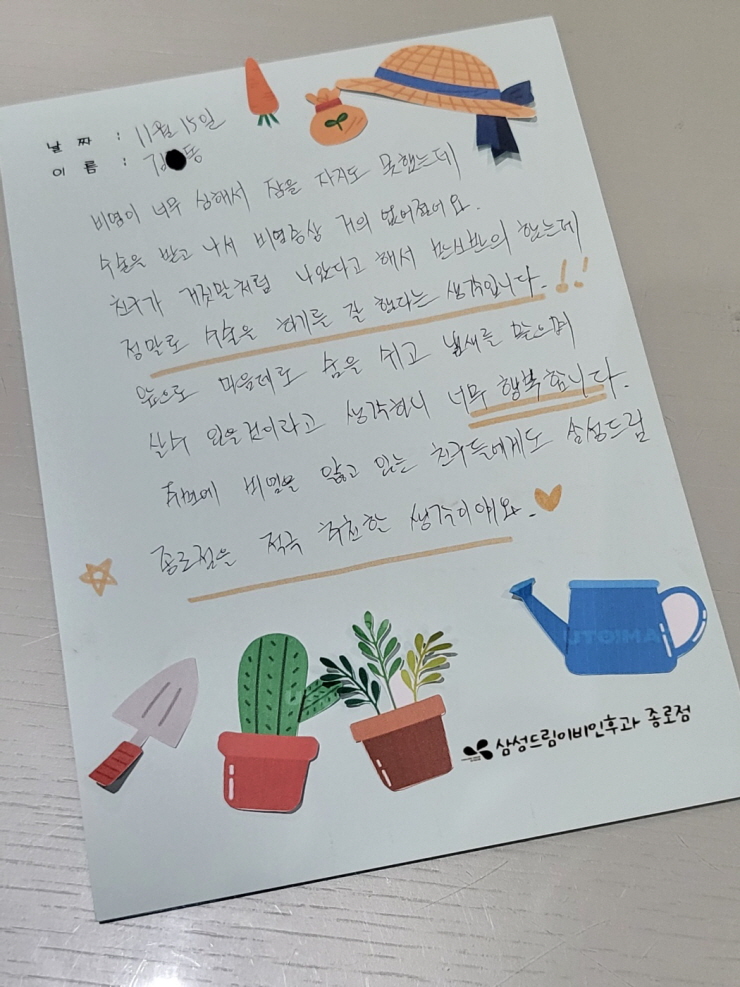 날 짜 : 11월 15일
이 름 : 김 동
비염이 너무 심해서 잠을 자지도 못했는데
수술을 받고 나서 비염증상 거의 없어졌어요.
친구가 거짓말처럼 나았다고 해서 반신반의 했는데
정말로 수술을 하기를 잘 했다는 생각입니다.!!
앞으로 마음대로 숨을 쉬고 냄새를 맡으며
살수 있을것이라고 생각하니 너무 행복합니다.
주변에 비염을 앓고 있는 친구들에게도 삼성드림
종로점을 적극 추천할 생각이에요.
UTOIMA
삼성드림이비인후과 종로점